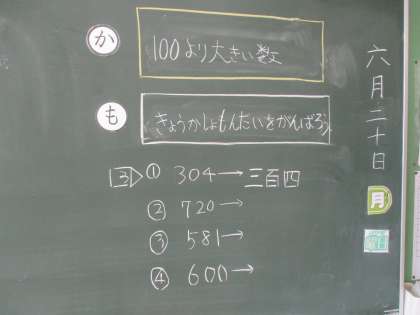 か
100より大きい数
も
きょうかしょもんだいをがんばろう。
3 ① 304→三百四
② 720→
③ 581→
④ 600→
六月二十日
月
曜日